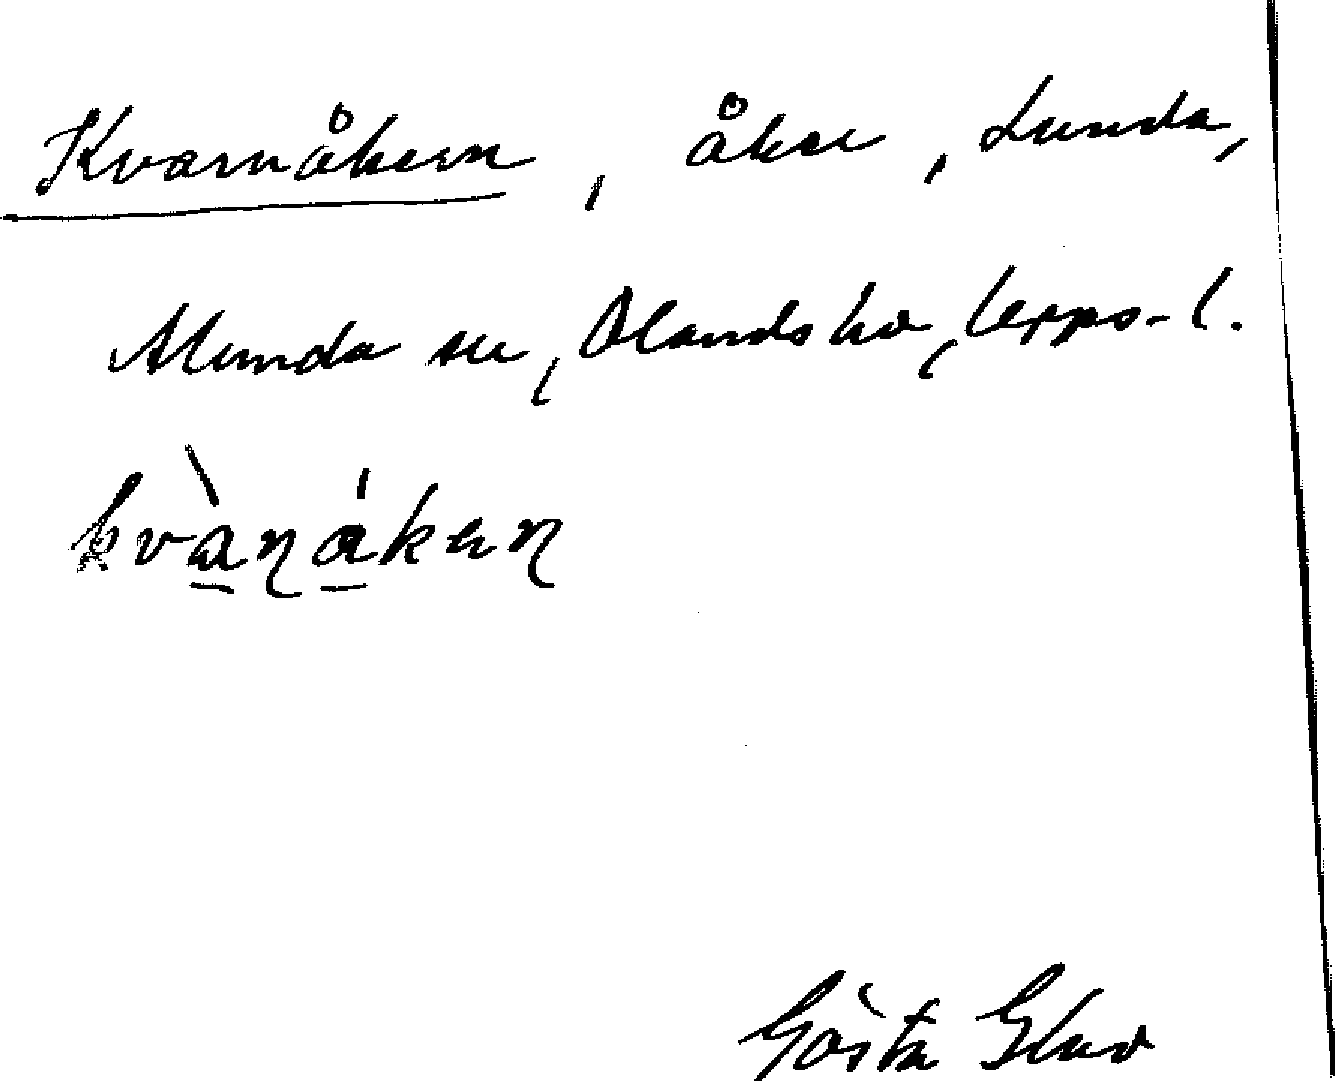 Kvarnåkern, åker, Lunda,
Alunda sn, Olands hd, Upps. l.
kvànákeɳ
Gösta